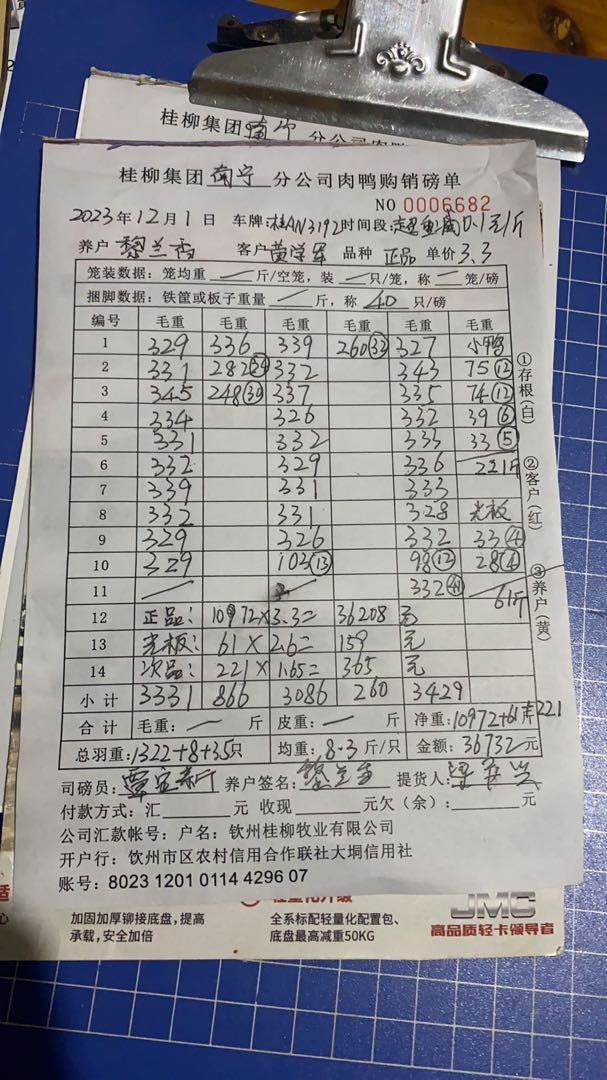 桂柳集团南宁 分公司肉鸭购
桂柳集团 南宁 分公司肉鸭购销磅单
NO 0006682
2023年12月1日 车牌:桂AN3192 时间段:超重减0.1元/斤
养户 黎兰香 客户 黄学军 品种 正品 单价 3.3
笼装数据:笼均重 — 斤/空笼,装 — 只/笼,称 — 笼/磅
捆脚数据:铁筐或板子重量 — 斤,称 40 只/磅
编号 毛重 毛重 毛重 毛重 毛重 毛重
1 329 336 339 260(32) 327 小鸭
2 331 282(34) 332 343 75(12)
3 345 248(30) 337 335 74(12)
4 334 326 332 39(6)
5 331 332 333 33(5)
6 332 329 336 221斤
7 339 331 333
8 332 331 328 光板
9 329 326 332 33(4)
10 329 103(13) 98(12) 28(4)
11 — — 332(41) 61斤
12 正品: 10972×3.3= 36208 元
13 光板: 61×2.6= 159 元
14 次品: 221×1.65= 365 元
小计 3331 866 3086 260 3429
合计 毛重: — 斤 皮重: — 斤 净重:10972+61+221
总羽重:1322+8+35只 均重:8.3斤/只 金额:36732元
司磅员: 养户签名:黎兰香 提货人:
付款方式:汇 元 收现 元欠(余): 元
公司汇款帐号:户名:钦州桂柳牧业有限公司
开户行:钦州市区农村信用合作联社大垌信用社
账号:8023 1201 0114 4296 07
①存根(白)
②客户(红)
③养户(黄)
加固加厚铆接底盘,提高
承载,安全加倍
全系标配轻量化配置包、
底盘最高减重50KG
JMC
高品质轻卡领导者